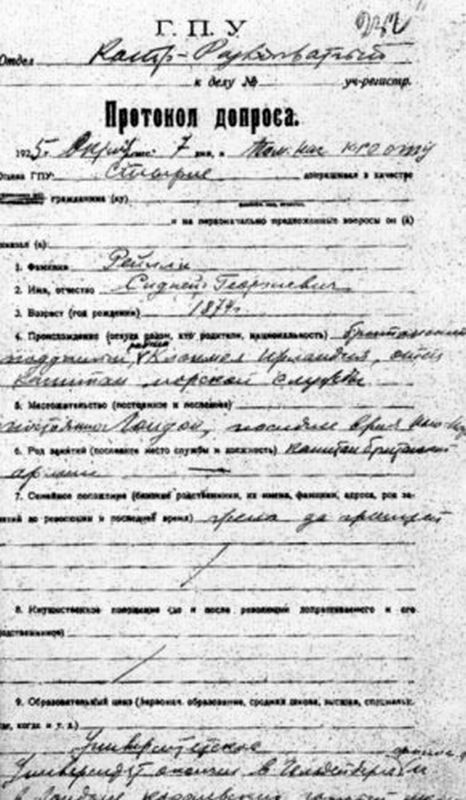 Г. П. У
232
Отдел Контр-Разведывательный
к делу № уч-регистр.
Протокол допроса.
1925 г. мес. 7 дня, я Пом. нач. КРО ОГПУ
ГПУ Стырне допрашивал в качестве
гражданина (ку)
и на первоначально предложенные вопросы он (а)
показал (а):
1. Фамилия Рейлли
2. Имя, отчество Сидней Георгиевич
3. Возраст (год рождения) 1874 г.
4. Происхождение (откуда родом, кто родители, национальность) британский
подданный, Клонмел Ирландия, отец
капитан морской службы
5. Местожительство (постоянное и последнее)
постоянно Лондон, последнее время
6. Род занятий (последнее место службы и должность) капитан британской
армии
7. Семейное положение (близкие родственники, их имена, фамилии, адреса, род за-
нятий до революции и последнее время) жена за границей
8. Имущественное положение (до и после революции допрашиваемого и его
родственников)
9. Образовательный ценз (первонач. образование, средняя школа, высшая, специальн.
где, когда и т. д.)
Университетское
Университет окончил в
в Лондоне